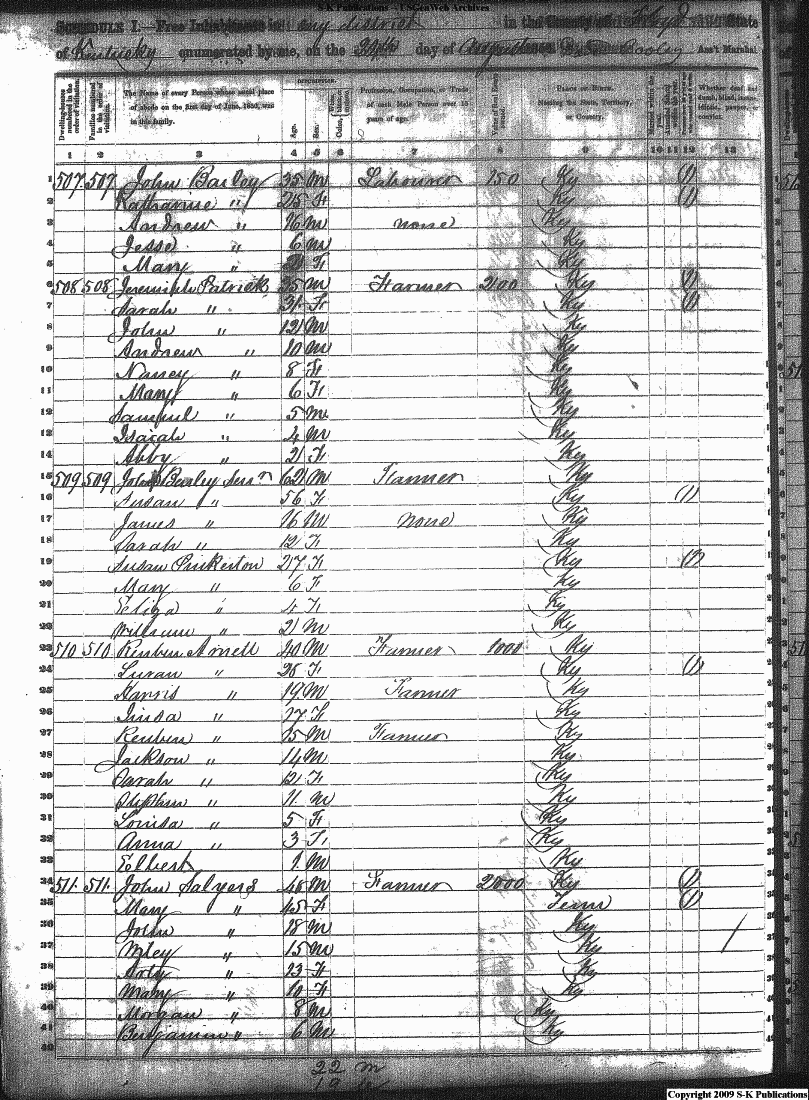 S-K Publications - USGenWeb Archives
SCHEDULE I.—Free Inhabitants in any district in the County of Floyd State
of Kentucky enumerated by me, on the 24th day of August Ass't Marshal
DESCRIPTION.
Dwelling-houses numbered in the order of visitation. Families numbered in the order of visitation. The Name of every Person whose usual place of abode on the first day of June, 1850, was in this family. Age. Sex. Color, Profession, Occupation, or Trade of each Male Person over 15 years of age. Value of Real Estate owned. PLACE OF BIRTH. Naming the State, Territory, or Country. Married within the year. Whether deaf and dumb, blind, convict.
1 2 3 4 5 6 7 8 9 10 11 12 13
1 507 507 John Bailey 35 M Labourer 150 Ky (1)
2 Katharine " 25 F Ky (1)
3 Andrew " 16 M none Ky
4 Jesse " 6 M Ky
5 Mary " 2 F Ky
6 508 508 Jeremiah Patrick 35 M Farmer 2100 Ky (1)
7 Sarah " 31 F Ky (1)
8 John " 12 M Ky
9 Andrew " 10 M Ky
10 Nancy " 8 F Ky
11 Mary " 6 F Ky
12 Samuel " 5 M Ky
13 Isaiah " 4 M Ky
14 Abby " 2 F Ky
15 509 509 John Bailey Senr 62 M Farmer Ky
16 Susan " 56 F Ky (1)
17 James " 16 M none Ky
18 Sarah " 12 F Ky
19 Susan Pinkerton 27 F Ky (1)
20 Mary " 6 F Ky
21 Eliza " 4 F Ky
22 William " 2 M Ky
23 510 510 Reuben Arnett 40 M Farmer 1000 Ky
24 Luran " 38 F Ky (1)
25 Harris " 19 M Farmer Ky
26 Linda " 17 F Ky
27 Reuben " 15 M Farmer Ky
28 Jackson " 14 M Ky
29 Sarah " 12 F Ky
30 Stephen " 11 M Ky
31 Louisa " 5 F Ky
32 Anna " 3 F Ky
33 Elbert 1 M Ky
34 511 511 John Salyers 48 M Farmer 2000 Ky (1)
35 Mary " 45 F Tenn (1)
36 John " 18 M Ky
37 Wiley " 15 M Ky /
38 " 13 F Ky
39 Mary " 10 F Ky
40 Morgan " 8 M Ky
41 Benjamin " 6 M Ky
22 m
19
Copyright 2009 S-K Publications